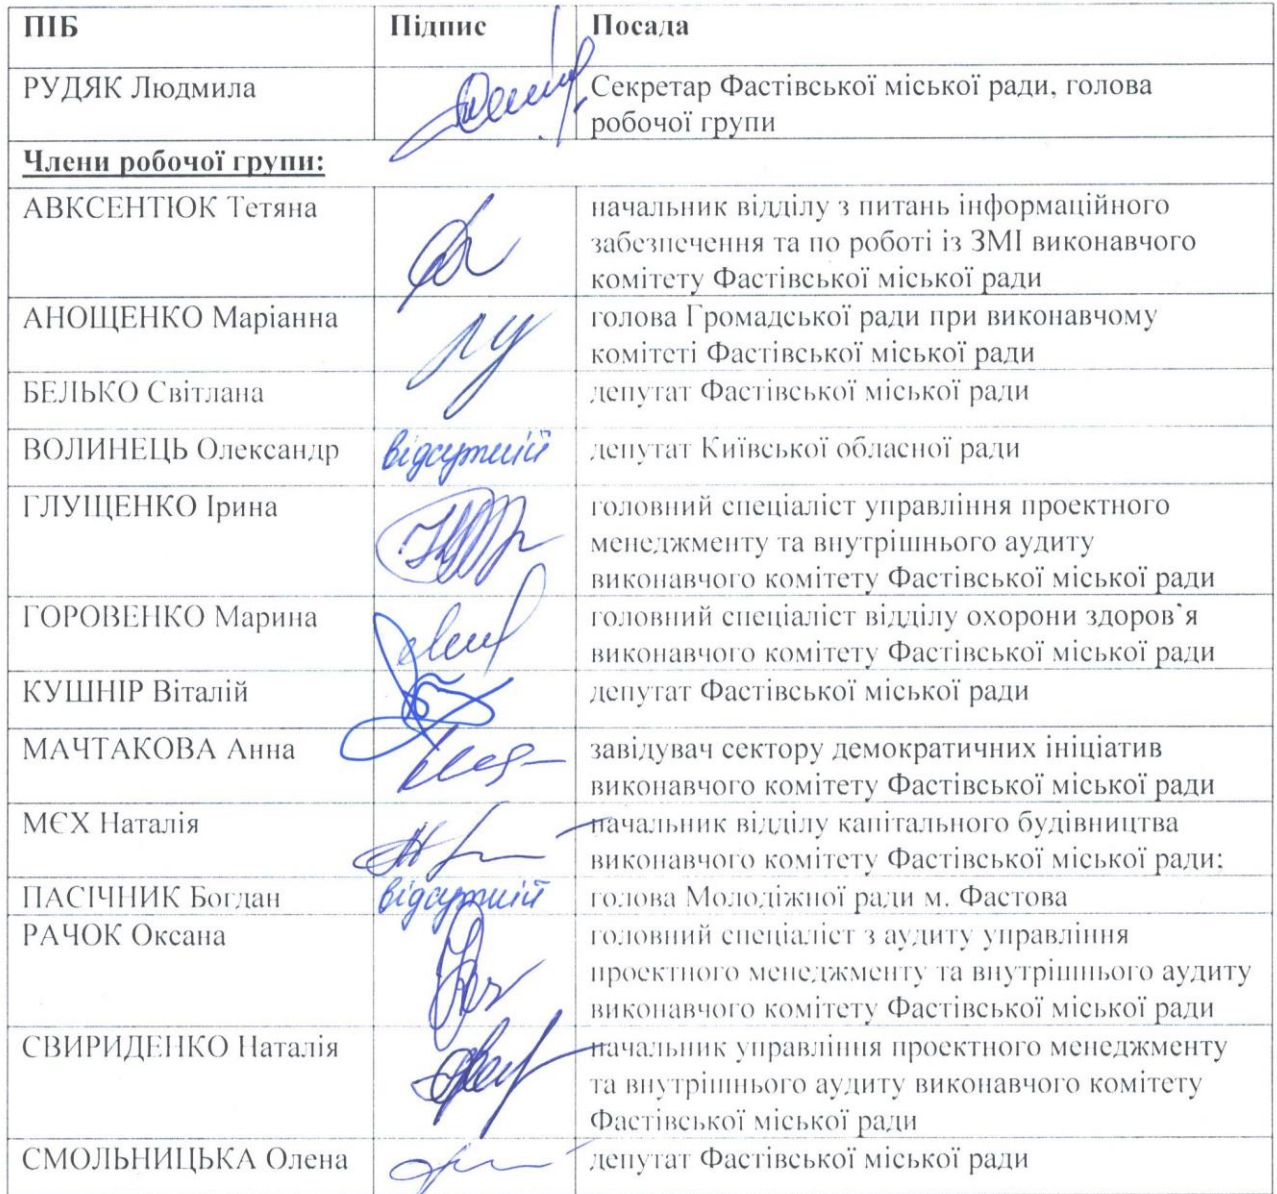 ПІБ Підпис Посада
РУДЯК Людмила Секретар Фастівської міської ради, голова
робочої групи
Члени робочої групи:
АВКСЕНТЮК Тетяна начальник відділу з питань інформаційного
забезпечення та по роботі із ЗМІ виконавчого
комітету Фастівської міської ради
АНОЩЕНКО Маріанна голова Громадської ради при виконавчому
комітеті Фастівської міської ради
БЕЛЬКО Світлана депутат Фастівської міської ради
ВОЛИНЕЦЬ Олександр відсутній депутат Київської обласної ради
ГЛУЩЕНКО Ірина головний спеціаліст управління проектного
менеджменту та внутрішнього аудиту
виконавчого комітету Фастівської міської ради
ГОРОВЕНКО Марина головний спеціаліст відділу охорони здоров`я
виконавчого комітету Фастівської міської ради
КУШНІР Віталій депутат Фастівської міської ради
МАЧТАКОВА Анна завідувач сектору демократичних ініціатив
виконавчого комітету Фастівської міської ради
МЄХ Наталія начальник відділу капітального будівництва
виконавчого комітету Фастівської міської ради;
ПАСІЧНИК Богдан відсутній голова Молодіжної ради м. Фастова
РАЧОК Оксана головний спеціаліст з аудиту управління
проектного менеджменту та внутрішнього аудиту
виконавчого комітету Фастівської міської ради
СВИРИДЕНКО Наталія начальник управління проектного менеджменту
та внутрішнього аудиту виконавчого комітету
Фастівської міської ради
СМОЛЬНИЦЬКА Олена депутат Фастівської міської ради